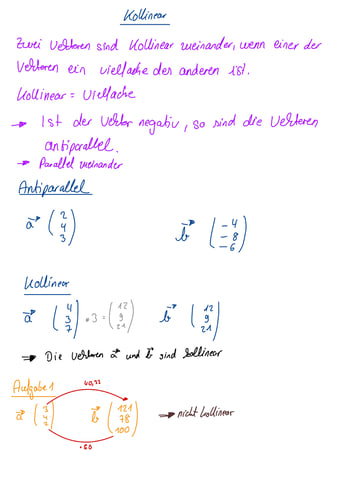 Kollinear
Zwei Vektoren sind Kollinear zueinander, wenn einer der
Vektoren ein vielfaches des anderen ist.
Kollinear = Vielfache
→ Ist der Vektor negativ, so sind die Vektoren
antiparallel.
→ Parallel zueinander
Antiparallel
a⃗ (2 4 3) b⃗ (-4 -8 -6)
Kollinear
a⃗ (4 3 7) • 3 = (12 9 21) b⃗ (12 9 21)
⇒ Die Vektoren a⃗ und b⃗ sind kollinear
Aufgabe 1
40,33
a⃗ (3 4 7) b⃗ (121 78 100) ⇒ nicht kollinear